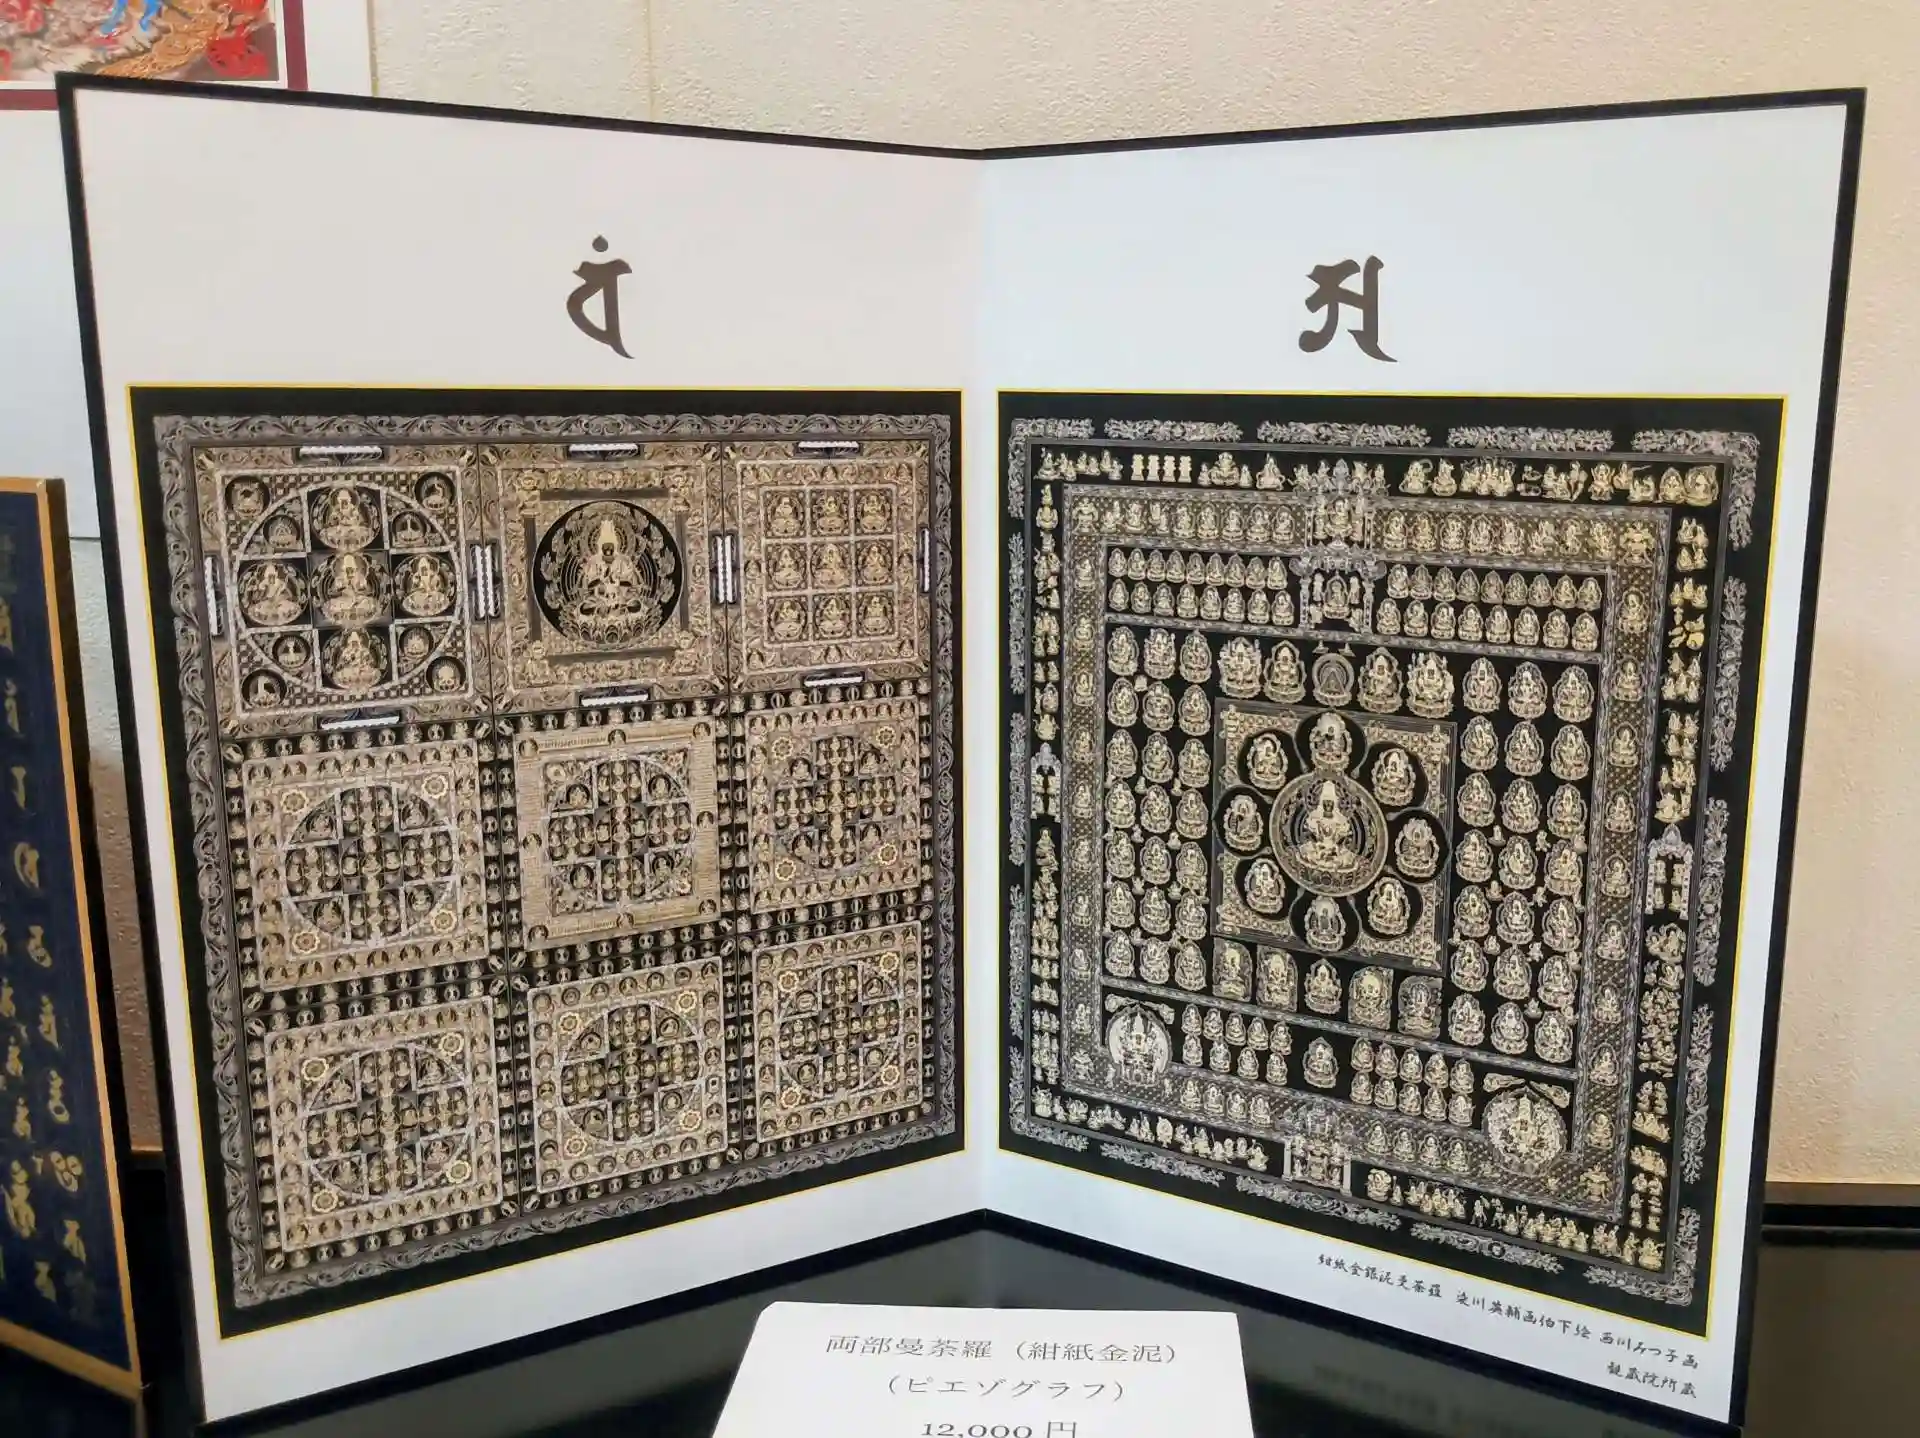 वं
अ
紺紙金銀泥曼荼羅 染川英輔画伯下絵 西川みつ子画
観蔵院所蔵
両部曼荼羅（紺紙金泥）
（ピエゾグラフ）
12,000 円